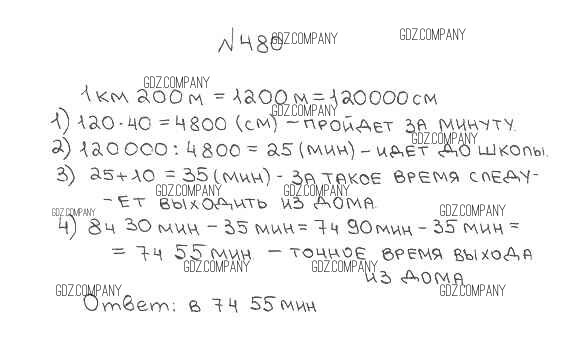 №480
GDZ.COMPANY GDZ.COMPANY
GDZ.COMPANY
1 км 200 м = 1200 м = 120000 см
GDZ.COMPANY
1) 120 · 40 = 4800 (см) – пройдет за минуту.
GDZ.COMPANY
2) 120 000 : 4800 = 25 (мин) – идет до школы.
3) 25 + 10 = 35 (мин) - за такое время следу-
GDZ.COMPANY GDZ.COMPANY
-ет выходить из дома.
GDZ.COMPANY GDZ.COMPANY
4) 8ч 30 мин – 35 мин = 7ч 90 мин – 35 мин =
= 7ч 55 мин. – точное время выхода
GDZ.COMPANY GDZ.COMPANY
из дома
GDZ.COMPANY GDZ.COMPANY
Ответ: в 7ч 55 мин